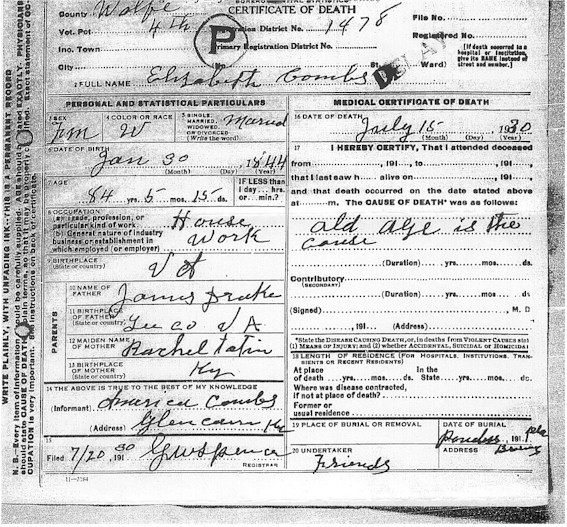 CERTIFICATE OF DEATH
County Wolfe
Vot. Pct 4th Registration District No. 1478 File No.
P
Inc. Town Primary Registration District No. Registered No.
[If death occurred in a hospital or institution, give its NAME instead of street and number.]
City (No. St. Ward)
DELAY
2 FULL NAME Elizabeth Combs
PERSONAL AND STATISTICAL PARTICULARS
3 SEX Fem
4 COLOR OR RACE W
5 SINGLE, MARRIED, WIDOWED, OR DIVORCED (Write the word) Maried
6 DATE OF BIRTH
Jan 30 1844
(Month) (Day) (Year)
7 AGE
84 yrs. 5 mos. 15 ds.
IF LESS than 1 day... hrs. or min.?
8 OCCUPATION
(a) Trade, profession, or particular kind of work House
(b) General nature of industry business or establishment in which employed (or employer) Work
9 BIRTHPLACE (State or country) VA
PARENTS
10 NAME OF FATHER James Drake
11 BIRTHPLACE OF FATHER (State or country) Lee co VA
12 MAIDEN NAME OF MOTHER Rachel
13 BIRTHPLACE OF MOTHER (State or country) Ky
14 THE ABOVE IS TRUE TO THE BEST OF MY KNOWLEDGE
(Informant) America Combs
(Address) Glencairn Ky
15
Filed 7/20 191 30 GW Spencer
REGISTRAR
MEDICAL CERTIFICATE OF DEATH
16 DATE OF DEATH
July 15 1930
(Month) (Day) (Year)
17 I HEREBY CERTIFY, That I attended deceased
from 191 to 191
that I last saw h alive on 191
and that death occurred on the date stated above
at m. The CAUSE OF DEATH* was as follows:
old age is the
cause
(Duration) yrs. mos. ds.
Contributory
(SECONDARY)
(Duration) yrs. mos. ds
(Signed) M. D
, 191 (Address)
*State the DISEASE CAUSING DEATH, or, in deaths from VIOLENT CAUSES state (1) MEANS OF INJURY; and (2) whether ACCIDENTAL, SUICIDAL or HOMICIDAL
18 LENGTH OF RESIDENCE (FOR HOSPITALS, INSTITUTIONS, TRANSIENTS OR RECENT RESIDENTS)
At place of death yrs. mos. ds. In the State yrs. mos. ds.
Where was disease contracted, if not at place of death?
Former or usual residence
19 PLACE OF BURIAL OR REMOVAL DATE OF BURIAL
191
20 UNDERTAKER ADDRESS
Friends
11-3184
WRITE PLAINLY, WITH UNFADING INK—THIS IS A PERMANENT RECORD